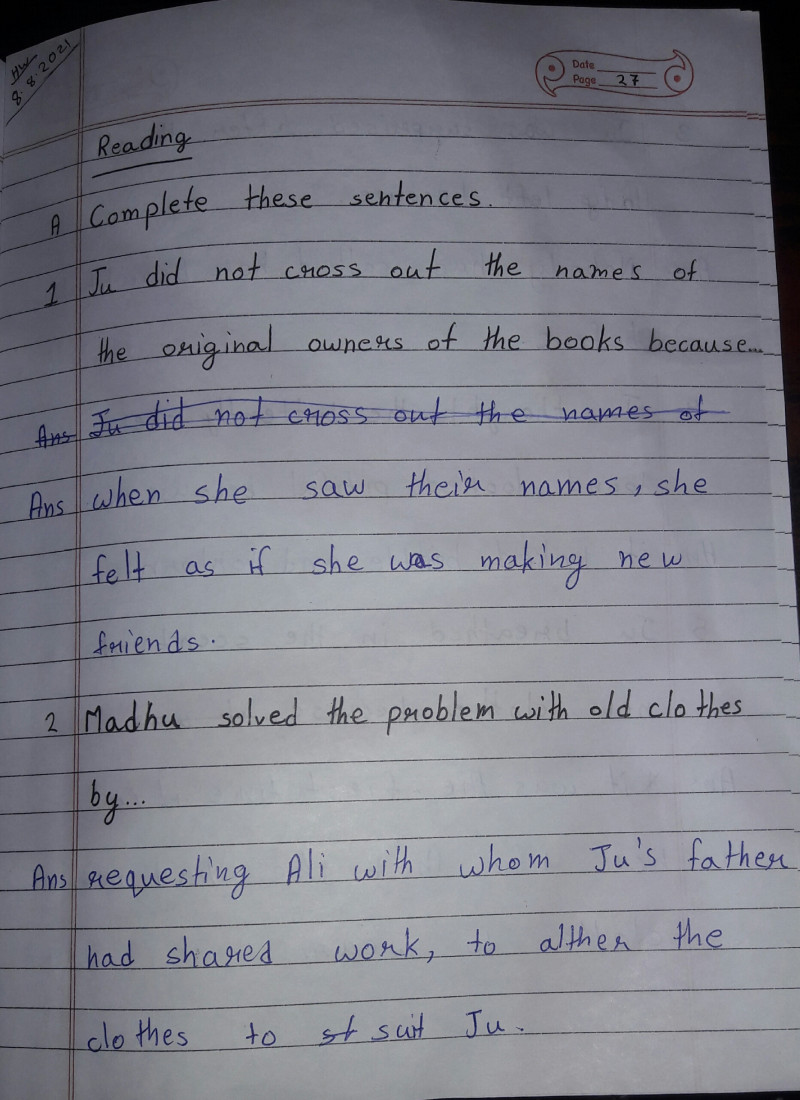 HW
8.8.2021
Date
Page 27
Reading
A Complete these sentences.
1 Ju did not cross out the names of
the original owners of the books because...
Ans Ju did not cross out the names of
Ans when she saw their names, she
felt as if she was making new
friends.
2 Madhu solved the problem with old clothes
by...
Ans requesting Ali with whom Ju's father
had shared work, to alther the
clothes to st suit Ju.